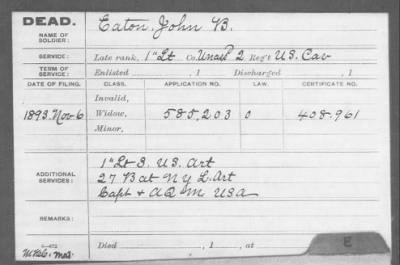 DEAD.
Eaton, John B.
NAME OF
SOLDIER:
SERVICE:
Late rank, 1" Lt Co. Unass'd 2 Reg't U.S. Cav
TERM OF
SERVICE:
Enlisted , 1 Discharged , 1
DATE OF FILING. CLASS. APPLICATION NO. LAW. CERTIFICATE NO.
Invalid,
1893. Nov. 6 Widow, 585,203 0 408.961
Minor,
1" Lt 3. U.S. Art
ADDITIONAL
SERVICES:
27 Bat N Y L. Art
Capt & A Q M. U S A
REMARKS:
Died , 1 , at
E